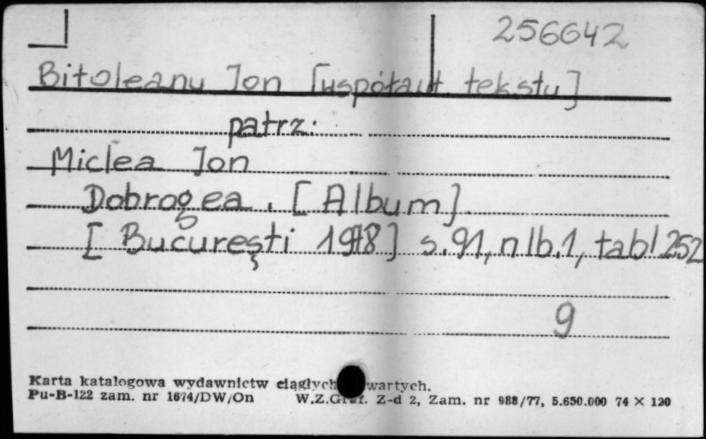 256642
Bitoleanu Jon [współaut. tekstu]
patrz:
Miclea Jon
Dobrogea. [Album]
[București 1978] s. 91, nlb. 1, tabl 252
9
Karta katalogowa wydawnictw ciągłych wartych.
Pu-B-122 zam. nr 1674/DW/On W.Z.Graf. Z-d 2, Zam. nr 988/77, 5.650.000 74 × 120